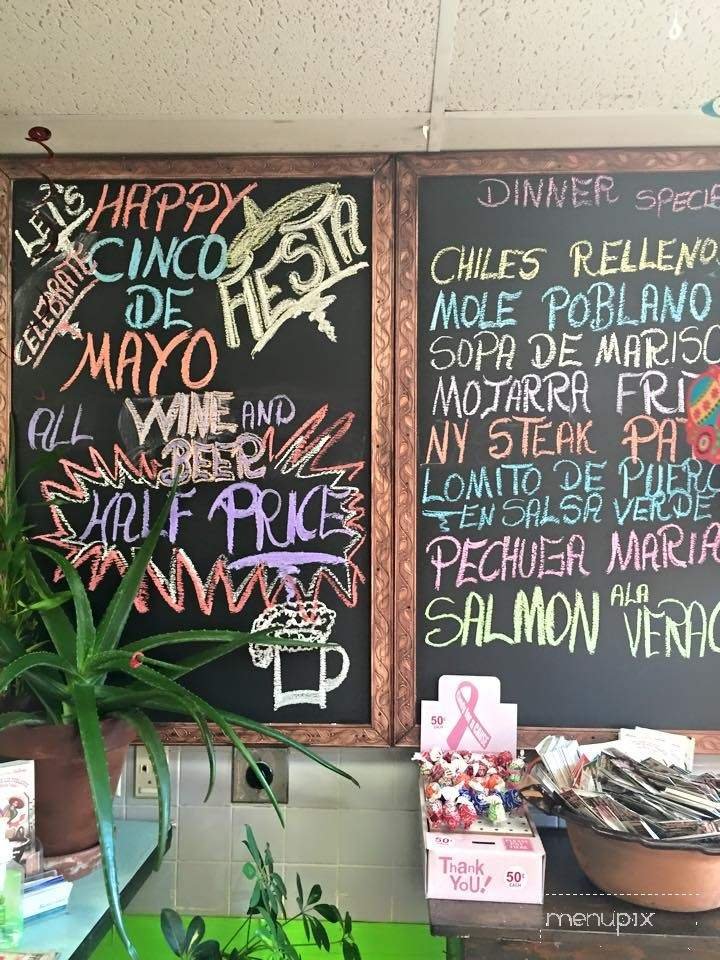 LET'S
CELEBRATE
HAPPY
CINCO
DE
MAYO
FIESTA
ALL WINE AND
BEER
HALF PRICE
DINNER SPECIA
CHILES RELLENOS
MOLE POBLANO
SOPA DE MARISC
MOJARRA FRIT
NY STEAK PA
LOMITO DE PUERC
EN SALSA VERDE
PECHUGA MARIA
SALMON ALA
VERAC
50¢
Thank
You!
50¢
EACH
menupix